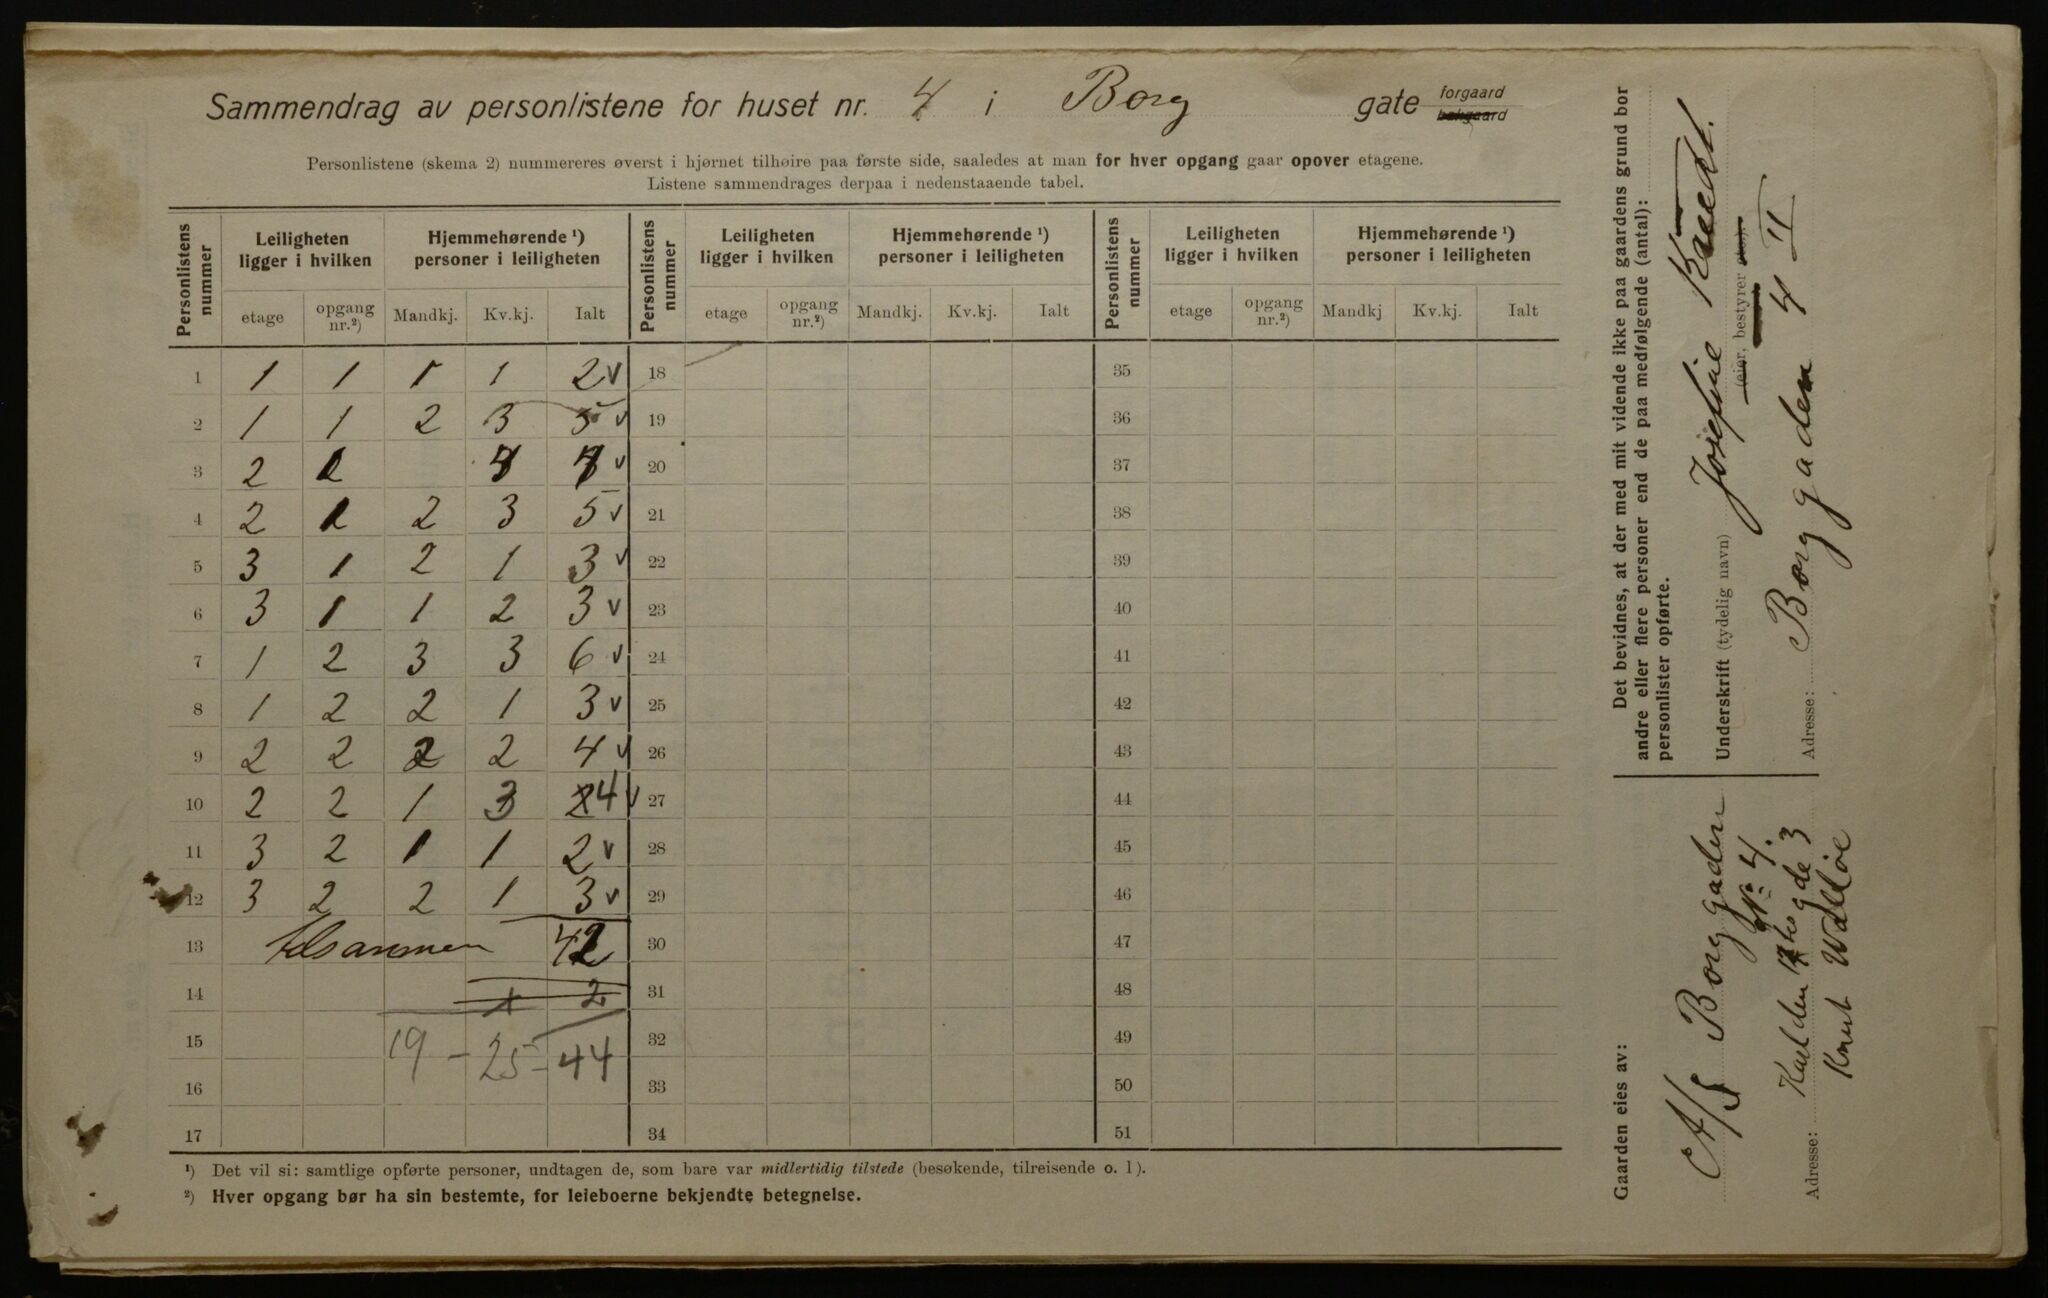 Sammendrag av personlistene for huset nr. 4 i Borg gate forgaard bakgaard
Personlistene (skema 2) nummereres øverst i hjørnet tilhøire paa første side, saaledes at man for hver opgang gaar opover etagene.
Listene sammendrages derpaa i nedenstaaende tabel.
Personlistens nummer Leiligheten ligger i hvilken Hjemmehørende ¹) personer i leiligheten Personlistens nummer Leiligheten ligger i hvilken Hjemmehørende ¹) personer i leiligheten Personlistens nummer Leiligheten ligger i hvilken Hjemmehørende ¹) personer i leiligheten
etage opgang nr.²) Mandkj. Kv.kj. Ialt etage opgang nr.²) Mandkj. Kv.kj. Ialt etage opgang nr.²) Mandkj Kv.kj. Ialt
1 1 1 1 1 2 v 18 35
2 1 1 2 3 5 v 19 36
3 2 1 4 4 v 20 37
4 2 1 2 3 5 v 21 38
5 3 1 2 1 3 v 22 39
6 3 1 1 2 3 v 23 40
7 1 2 3 3 6 v 24 41
8 1 2 2 1 3 v 25 42
9 2 2 2 2 4 v 26 43
10 2 2 1 3 4 v 27 44
11 3 2 1 1 2 v 28 45
12 3 2 2 1 3 v 29 46
13 tilsammen 42 30 47
14 2 31 48
15 19 - 25 - 44 32 49
16 33 50
17 34 51
¹) Det vil si: samtlige opførte personer, undtagen de, som bare var midlertidig tilstede (besøkende, tilreisende o. l).
²) Hver opgang bør ha sin bestemte, for leieboerne bekjendte betegnelse.
Det bevidnes, at der med mit vidende ikke paa gaardens grund bor
andre eller flere personer end de paa medfølgende (antal):
personlister opførte.
Underskrift (tydelig navn) Josefine
(eier, bestyrer etc.).
Adresse: Borggaden 4 II
Gaarden eies av:
A/S Borggaden
Nr. 4.
Adresse: Karl den gde 3
Knut Walløe